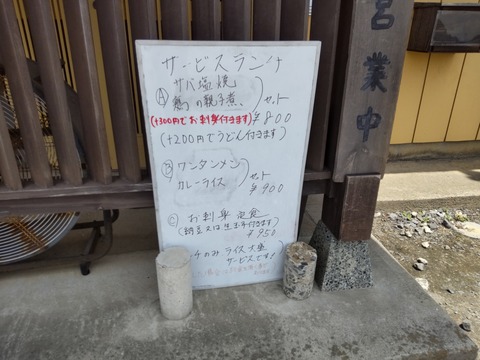 サービスランチ
Ⓐ サバ塩焼
鶏の親子煮、セット
(+300円でお刺身付きます) ¥800
(+200円でうどん付きます)
Ⓑ ワンタンメン
カレーライス セット
¥900
Ⓒ お刺身定食
(納豆又は生玉子付きます)
¥950
ライス大盛
サービスです!
営業中